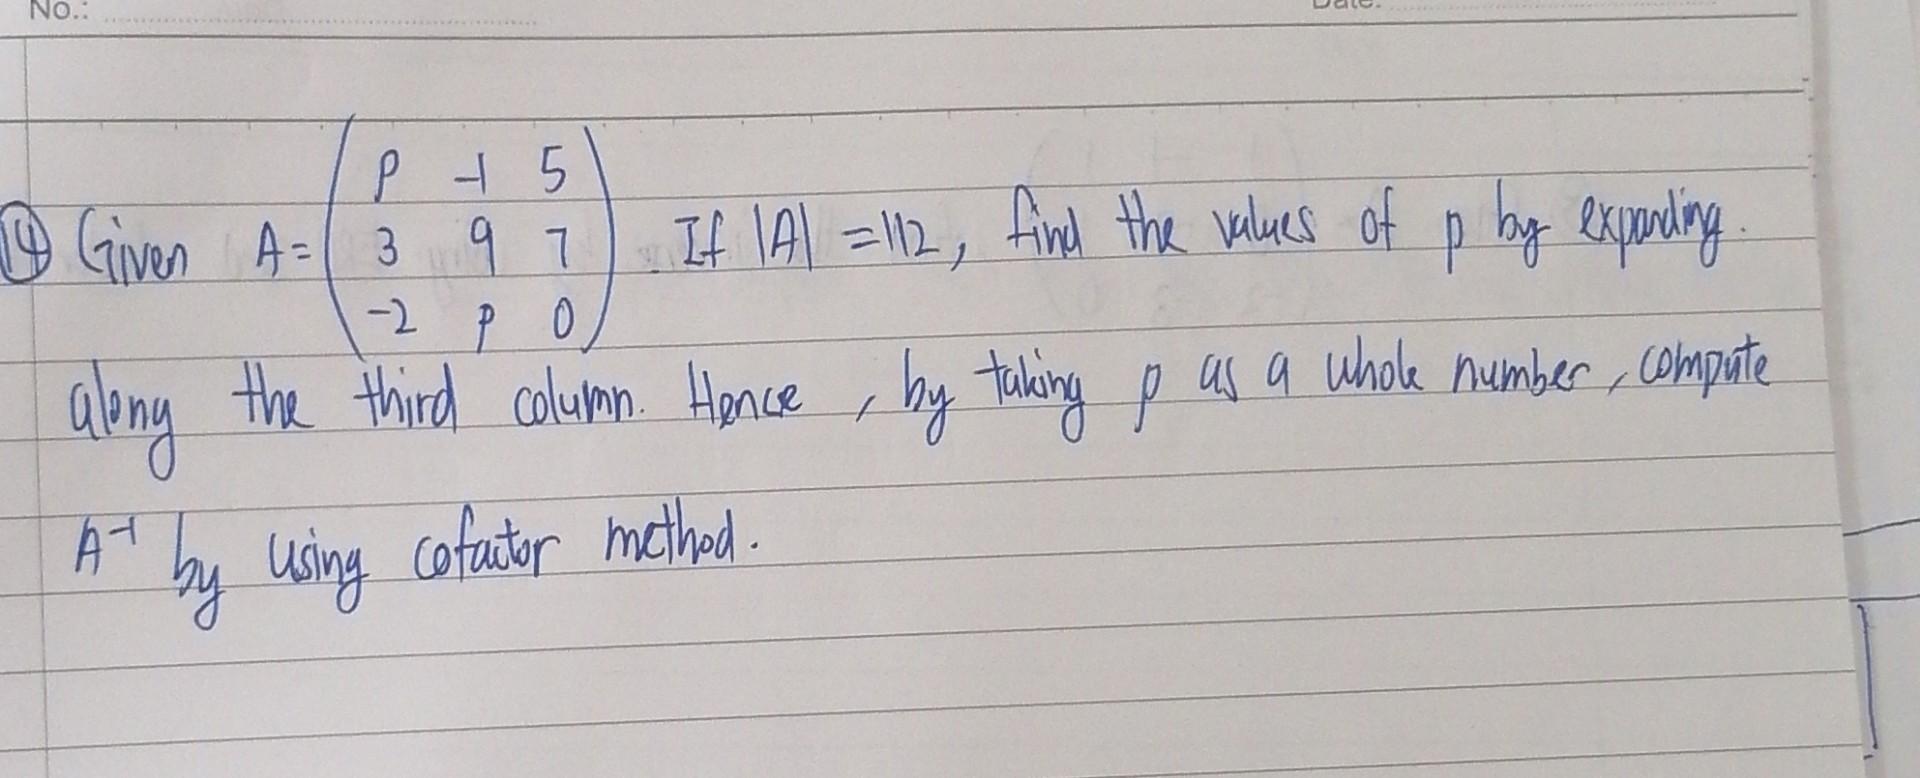 No.:
Date:
④ Given A = ( p -1 5
3 9 7
-2 p 0 ) . If |A| = 112, find the values of p by expanding.
along the third column. Hence, by taking p as a whole number, compute
A⁻¹ by using cofactor method.